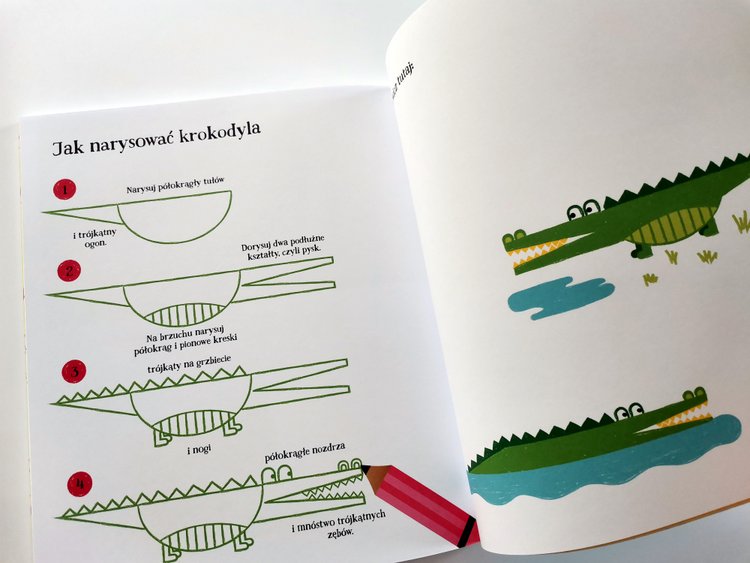 Jak narysować krokodyla
1
Narysuj półokrągły tułów
i trójkątny
ogon.
2
Dorysuj dwa podłużne
kształty, czyli pysk.
Na brzuchu narysuj
półokrąg i pionowe kreski
3
trójkąty na grzbiecie
i nogi
4
półokrągłe nozdrza
i mnóstwo trójkątnych
zębów.
tutaj: